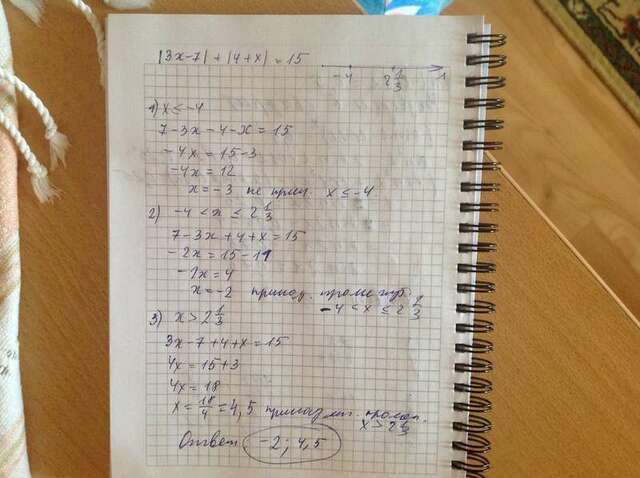 |3x-7| + |4+x| = 15
-4 2 1/3
1) x ≤ -4
7-3x-4-x = 15
-4x = 15-3
-4x = 12
x = -3 не прин x ≤ -4
2) -4 < x ≤ 2 1/3
7-3x+4+x = 15
-2x = 15-11
-2x = 4
x = -2 принад. промежут
-4 < x ≤ 2 1/3
3) x > 2 1/3
3x-7+4+x = 15
4x = 15+3
4x = 18
x = 18/4 = 4,5 принадлеж. промеж.
x > 2 1/3
Ответ -2; 4,5